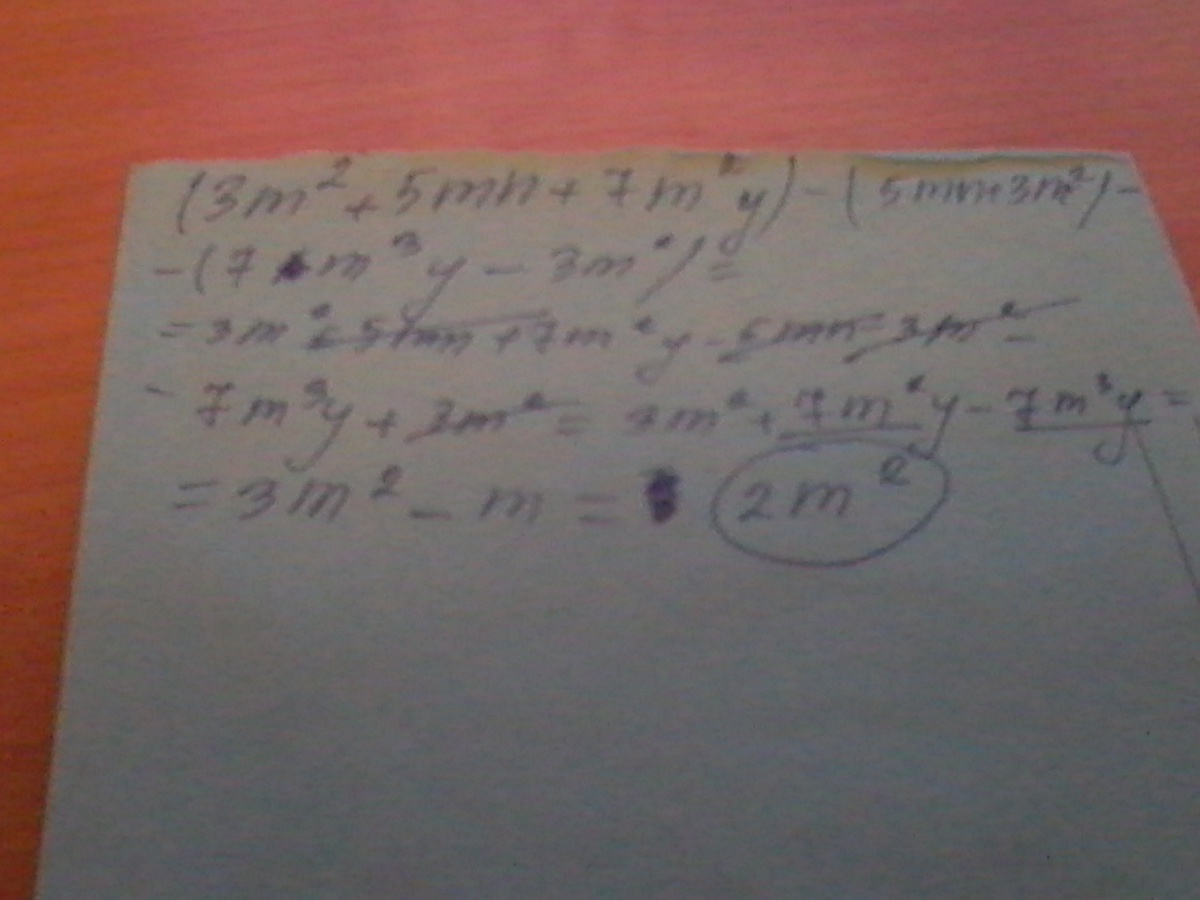 (3m² + 5mn + 7m²y) - (5mn+3m²) -
- (7m³y - 3m²) =
= 3m² + 5mn + 7m²y - 5mn - 3m² -
- 7m³y + 3m² = 3m² + 7m²y - 7m³y =
= 3m² - m = 2m²